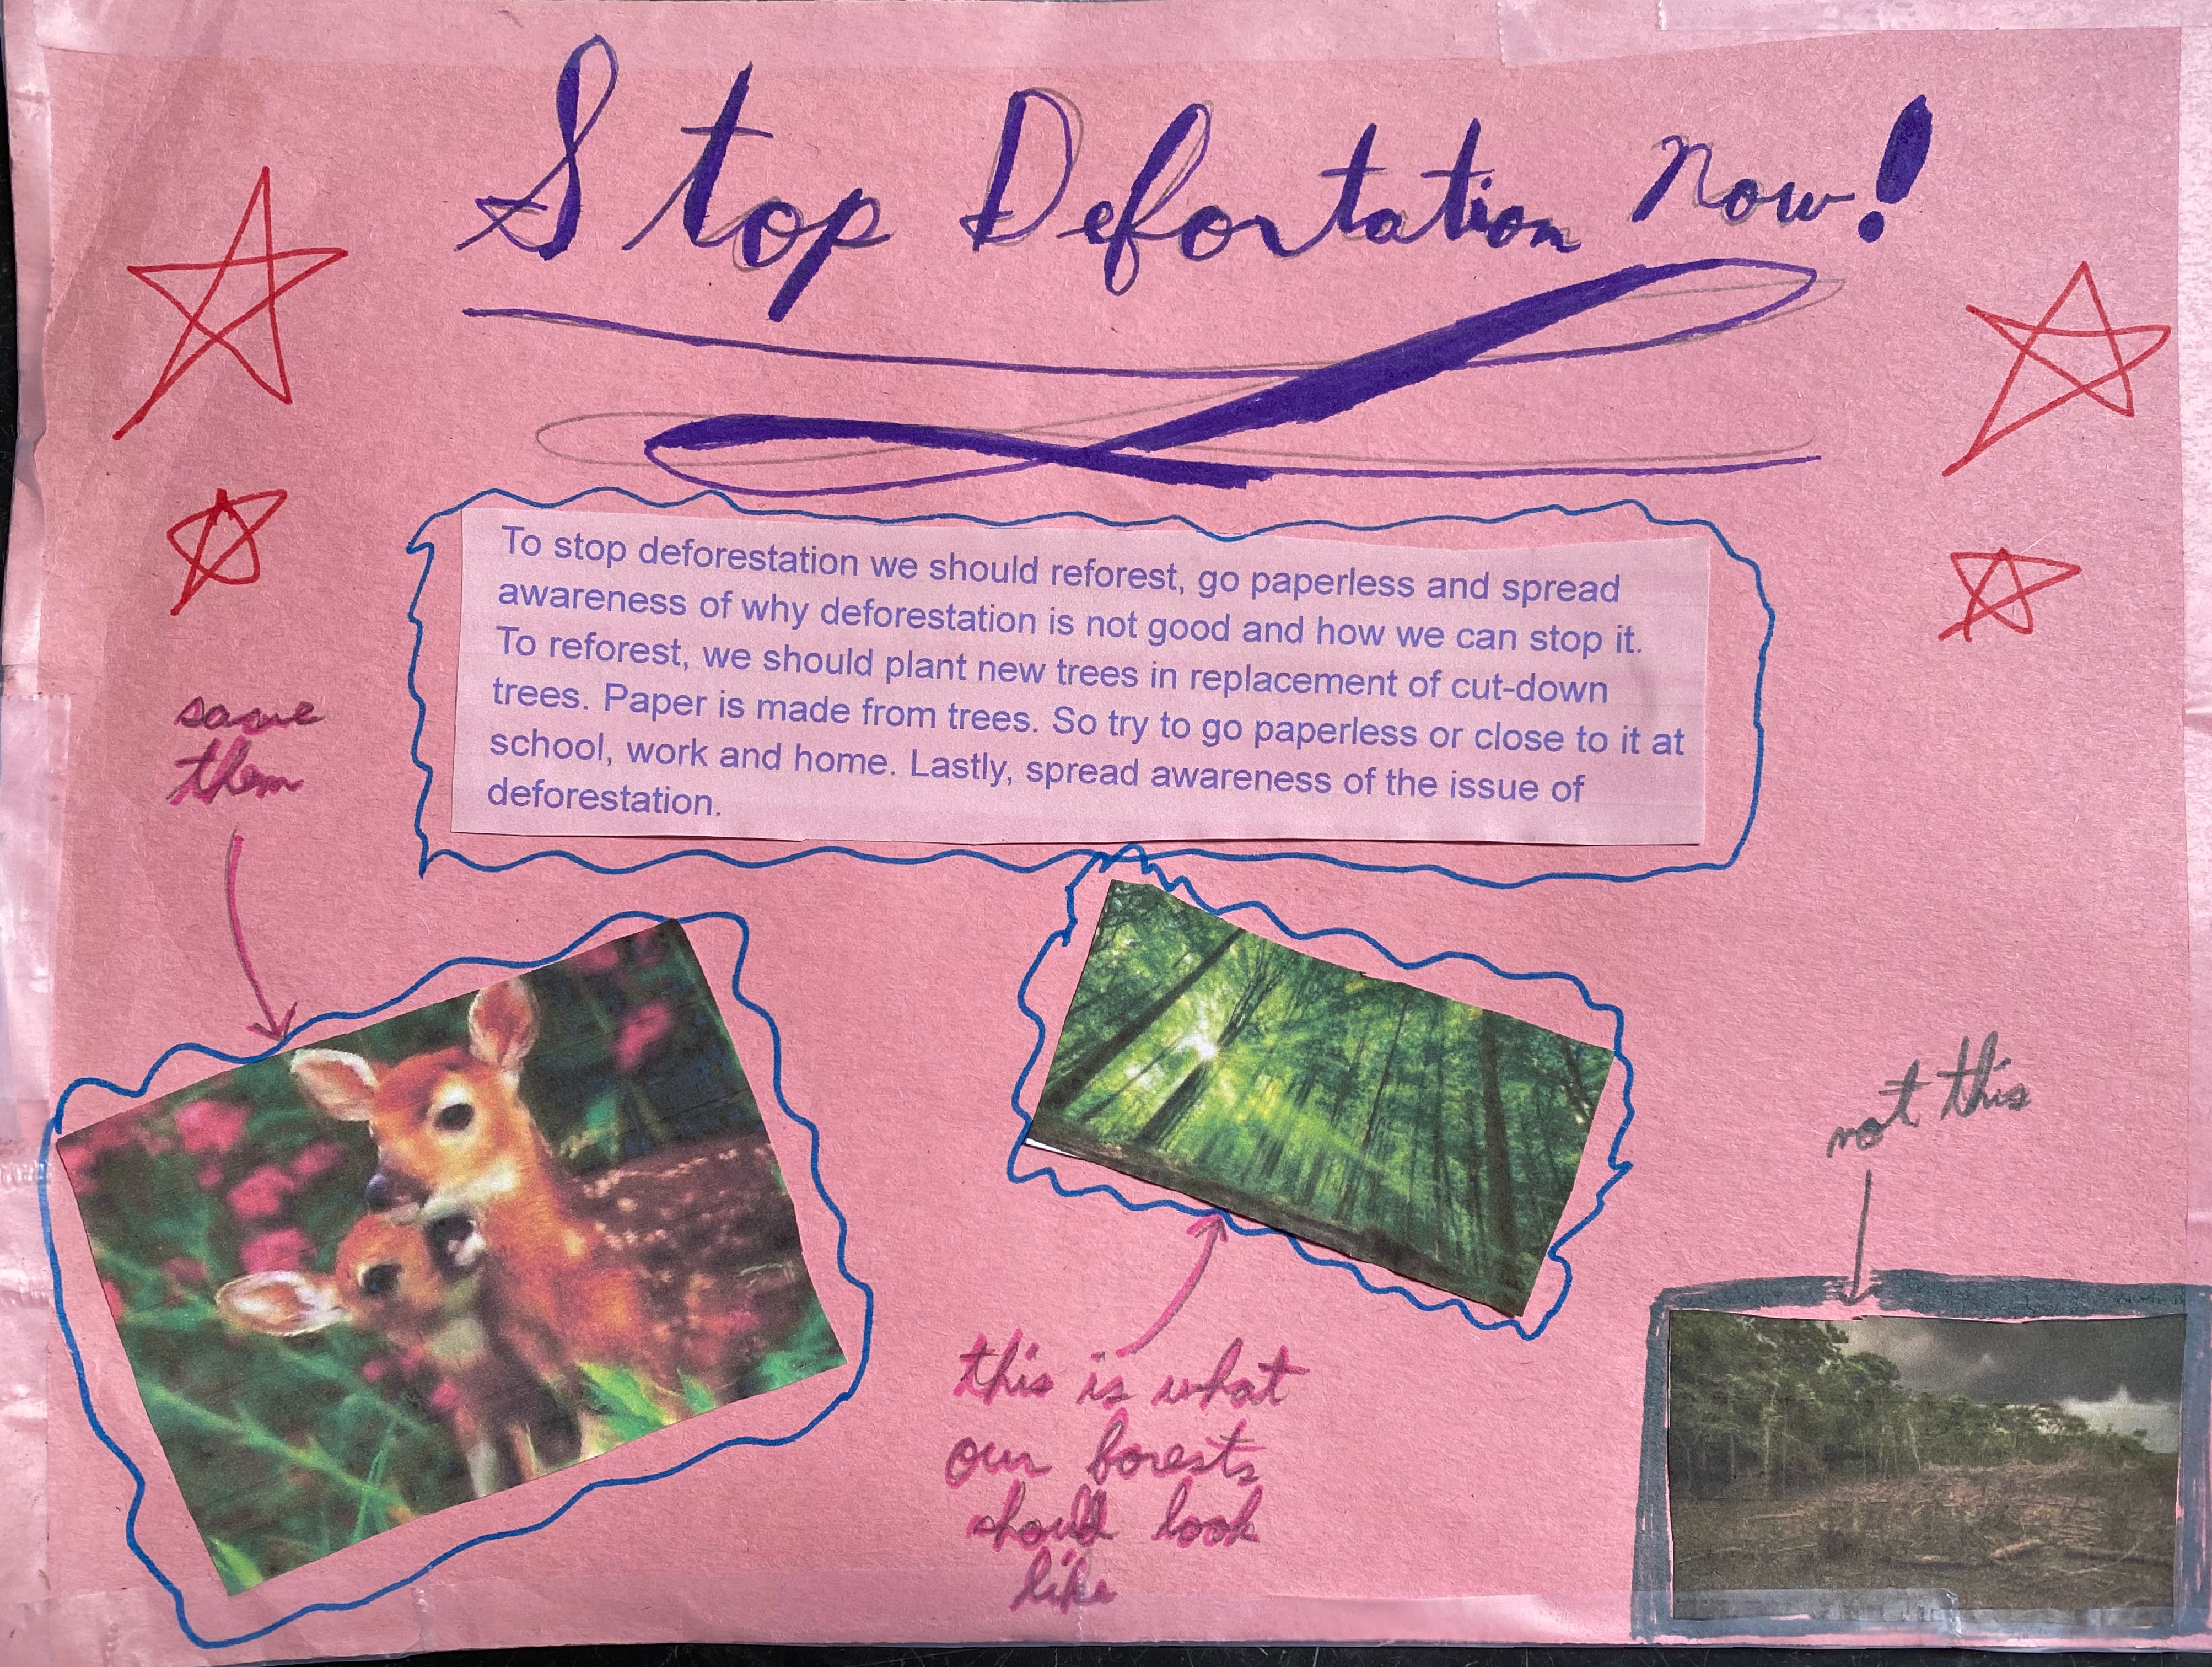 Stop Defortation Now!
To stop deforestation we should reforest, go paperless and spread
awareness of why deforestation is not good and how we can stop it.
To reforest, we should plant new trees in replacement of cut-down
trees. Paper is made from trees. So try to go paperless or close to it at
school, work and home. Lastly, spread awareness of the issue of
deforestation.
save
them
this is what
our forests
should look
like
not this